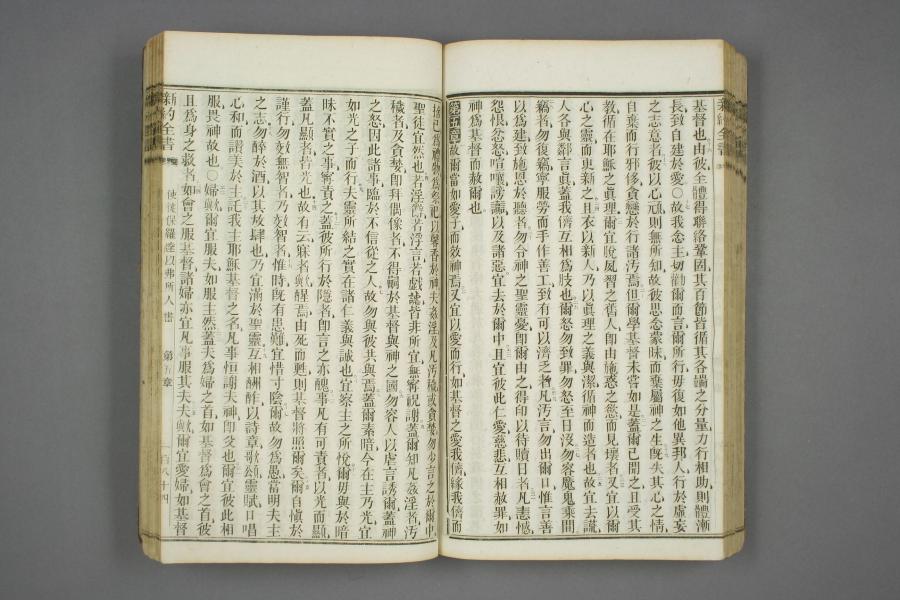 新約全書
基督也由彼全體得聯絡鞏固其百節皆循其各端之分量力行相助則體漸
長致自建於愛○故我忝主切勸爾而言爾所行毋復如他異邦人行於虛妄
之志意者彼以心頑則無所知故彼思念蒙昧而乘屬神之生旣失其心之情
自棄而行邪侈貪戀於行諸汚焉但爾學基督未嘗如是蓋爾已聞之且受其
教循在耶穌之眞理爾宜脫夙習之舊人卽由施惑之慾而見壞者又宜以爾
心之靈而更新之且衣以新人乃以眞理之義與潔循神而造者也故宜去謊
人各與鄰言眞蓋我儕互相爲肢也爾怒勿致罪勿怒至日沒勿容魔鬼乘間
竊者勿復竊寧服勞而手作善工致有可以濟乏者凡汚言勿出爾口惟言善
以爲建致施恩於聽者勿令神之聖靈憂卽爾由之得印以待贖日者凡恚憾
怨恨忿怒喧嚷謗讟以及諸惡宜去於爾中且宜彼此仁愛慈悲互相赦罪如
神爲基督而赦爾也
第五章故爾當如愛子而效神焉又宜以愛而行如基督之愛我儕緣我儕而
捨己爲禮物爲祭祀以馨香於神夫姦淫及凡汚穢或貪婪勿少言之於爾中
聖徒宜然也若淫辭若浮言若戲謔皆非所宜無寧祝謝蓋爾知凡姦淫者汚
穢者及貪婪卽拜偶像者不得嗣於基督與神之國勿容人以虛言誘爾蓋神
之怒因此諸事臨於不信從之人故勿與彼共與焉蓋爾素暗今在主乃光宜
如光之子而行夫靈所結之實在諸仁義與誠也宜察主之所悅爾毋與於暗
昧不實之事寧責之蓋彼所行於隱者卽言之亦醜事凡有可責者以光而顯
蓋凡顯者卽光也故有云寐者與醒焉由死而甦則基督將照爾矣爾自愼於
謹行勿效無智者乃效智者惟時旣有患難宜惜寸陰爾故勿爲愚當明夫主
之志勿醉於酒以其故肆也乃宜滿於聖靈互相酬酢以詩章歌頌靈賦口唱
心和而讚美於主託我主耶穌基督之名凡事恒謝夫神卽父也爾宜彼此相
服畏神故也○婦歟爾宜服夫如服主然蓋夫爲婦之首如基督爲會之首彼
且爲身之救者如會之服基督諸婦亦宜凡事服其夫夫歟爾宜愛婦如基督
新約全書 使徒保羅達以弗所人書 第五章 一百八十四